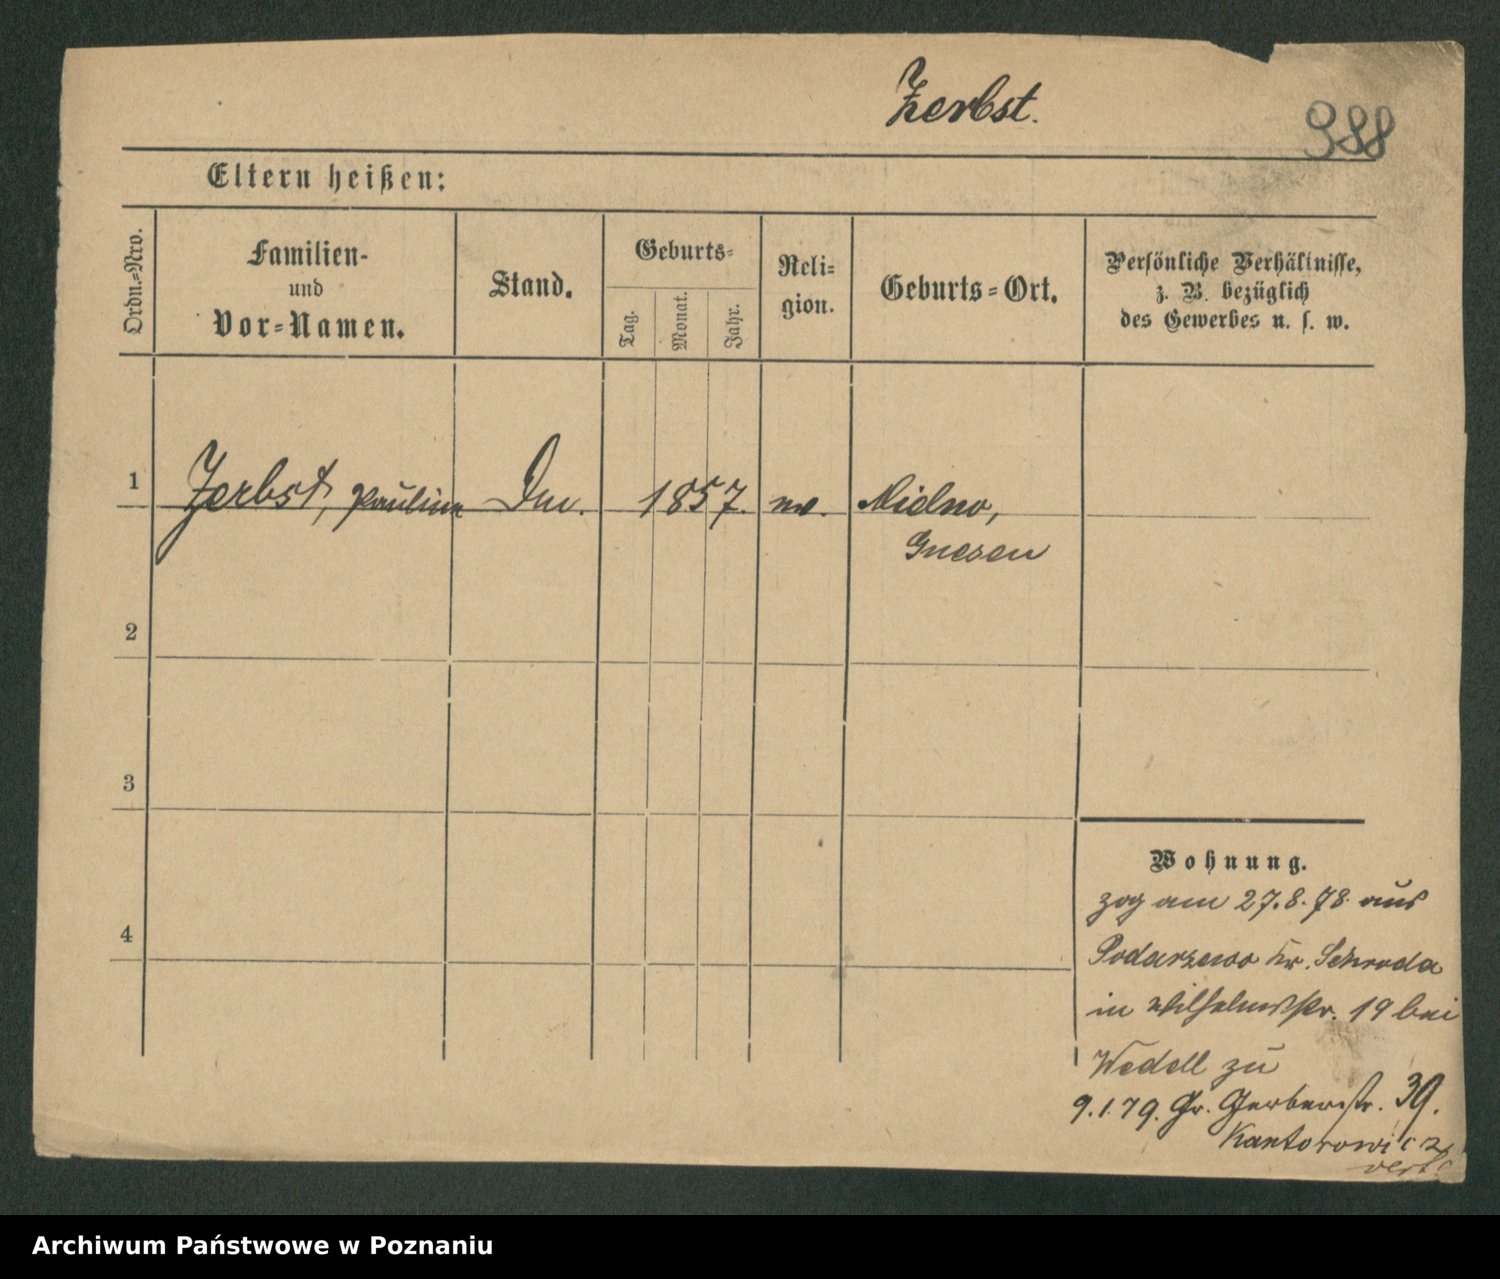 Zerbst.
388
Eltern heißen:
Ordn.-Nro.
Familien-
und
Vor-Namen.
Stand.
Geburts-
Tag.
Monat.
Jahr.
Reli-
gion.
Geburts-Ort.
Persönliche Verhältnisse,
z. B. bezüglich
des Gewerbes u. s. w.
1
Zerbst, Pauline
1857.
Gnesen
2
3
4
Wohnung.
zog am 27.8.78 aus
Podarzewo Kr. Schroda
in Wilhelmsstr. 19 bei
Wedell zu
9.1.79. Gr. Gerberstr. 39.
Kantorowicz
Archiwum Państwowe w Poznaniu